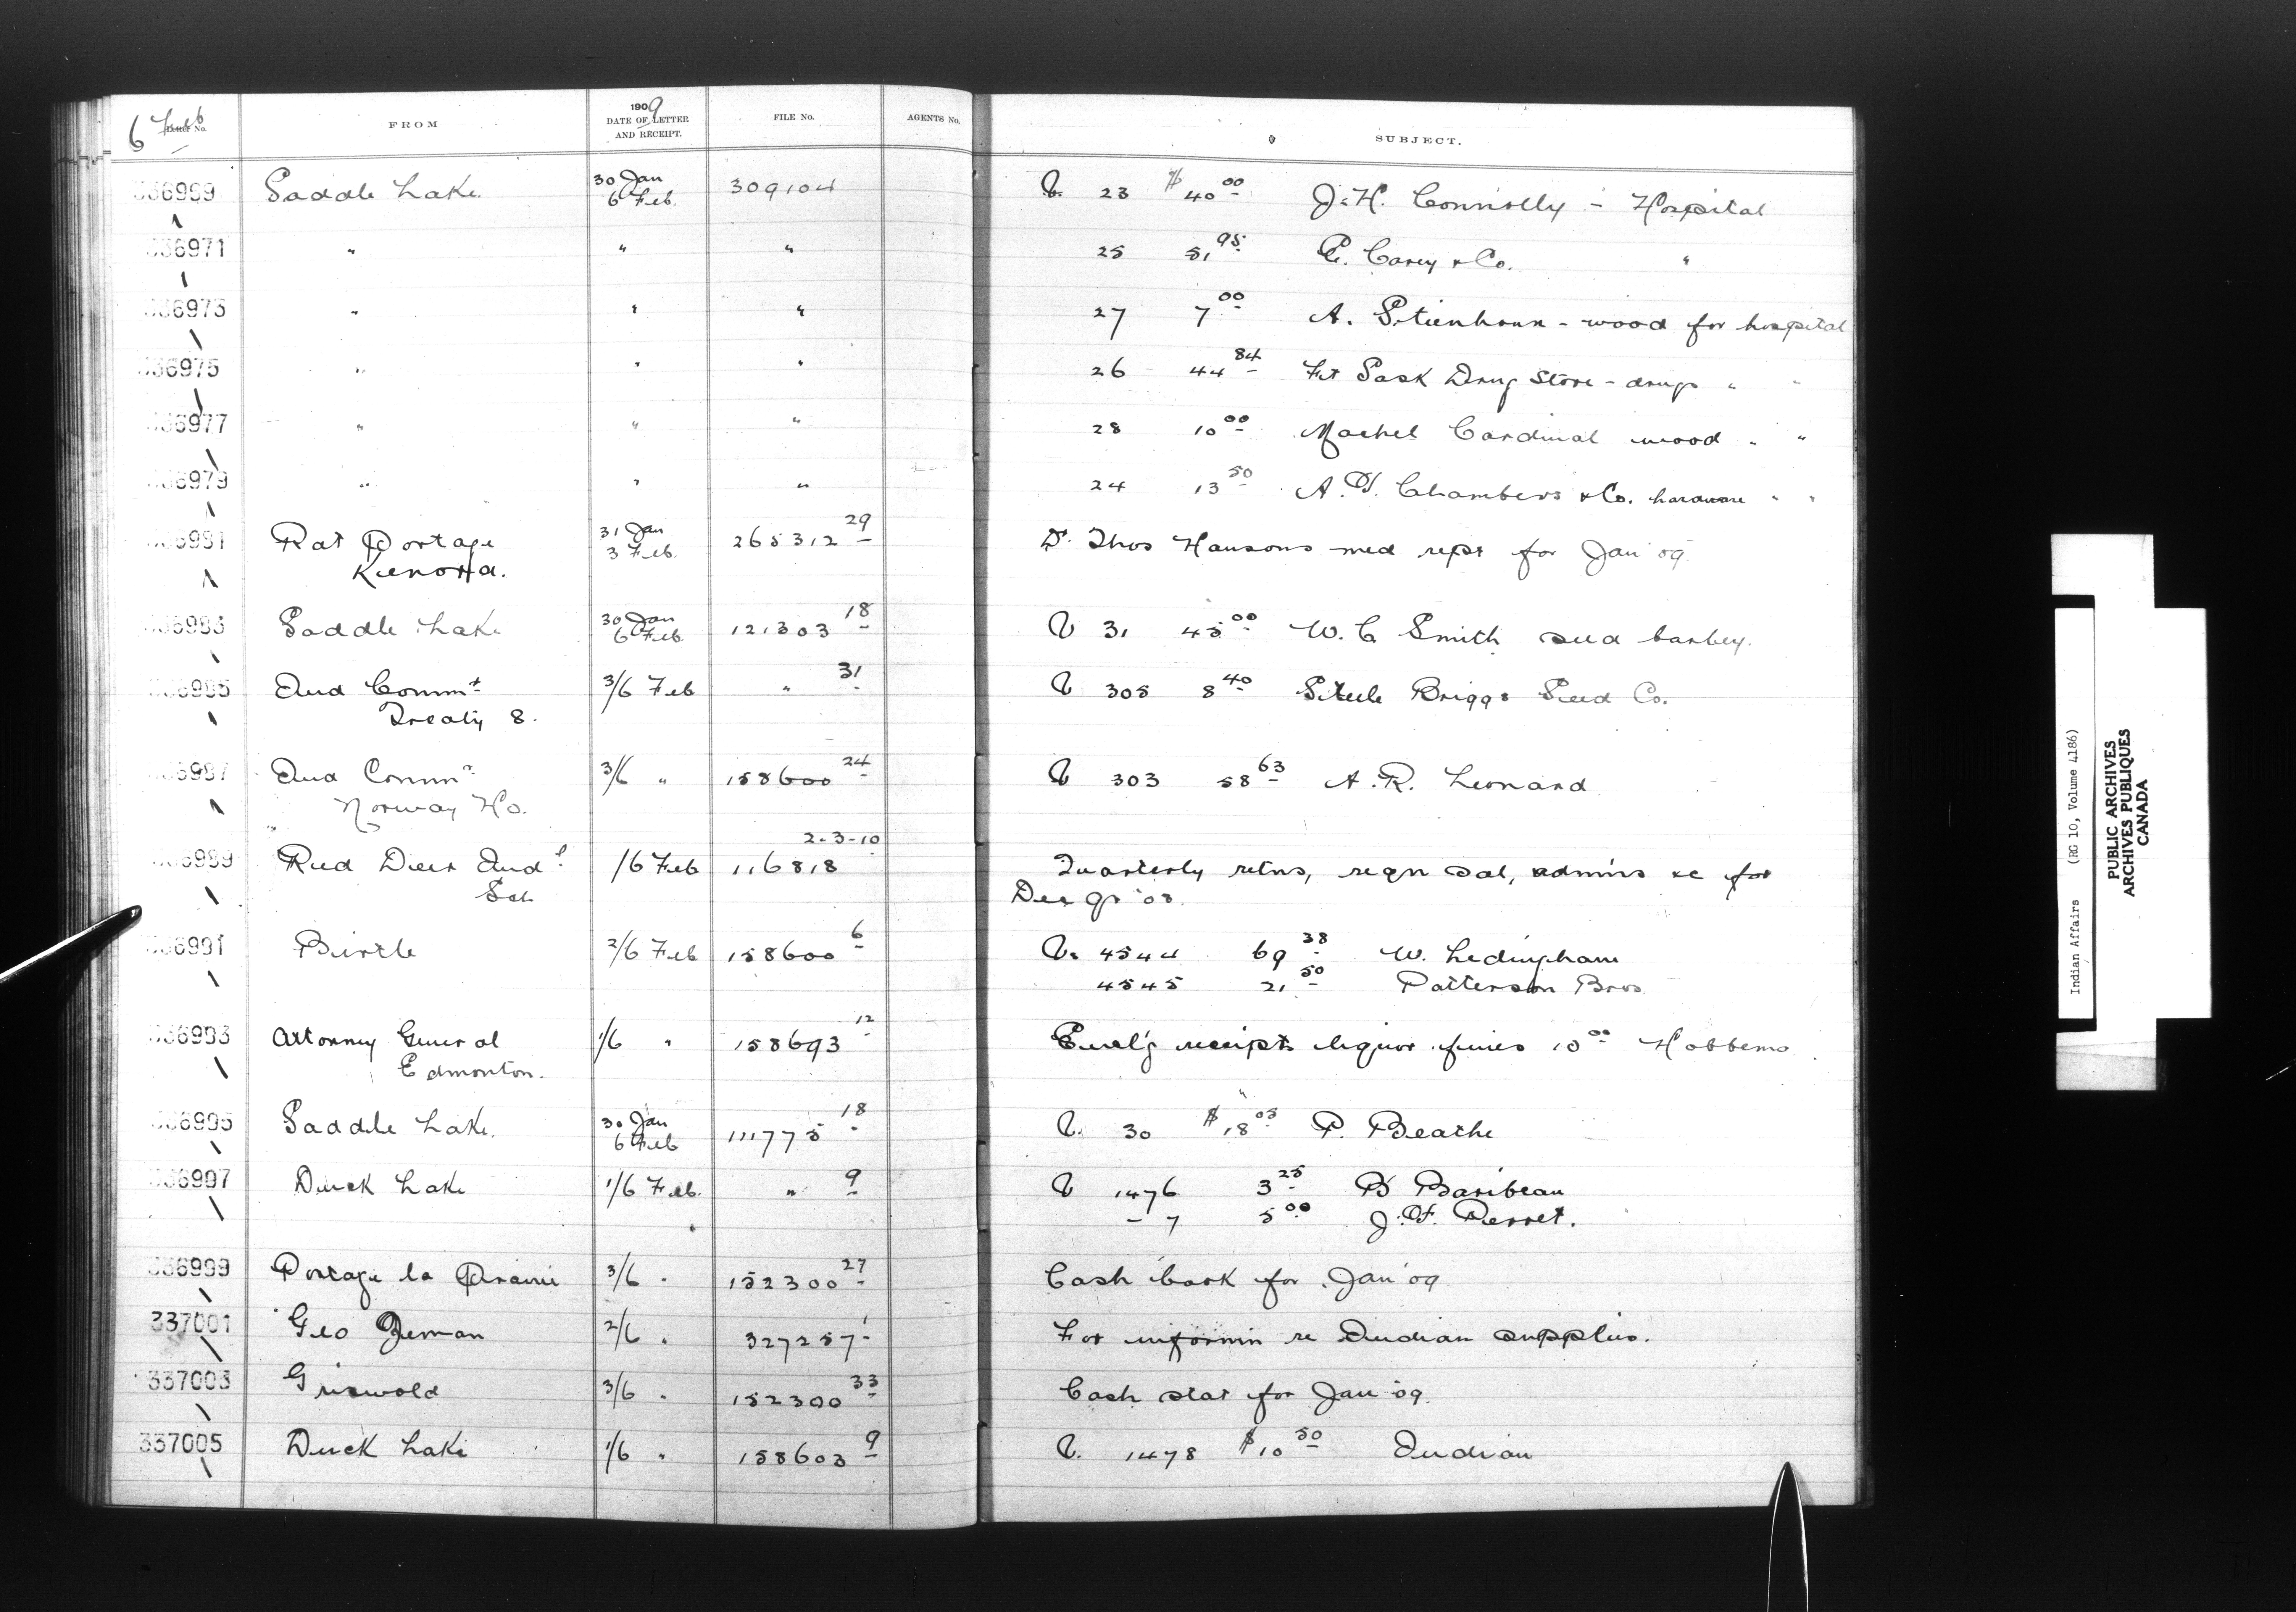 6 Feb
LETTER No. FROM 1909 DATE OF LETTER AND RECEIPT. FILE No. AGENTS No. SUBJECT.
336969 Saddle Lake 30 Jan 6 Feb. 309104 V. 23 $40 00 J. H. Connolly - Hospital
336971 " " " 25 51 95 E. Carey & Co. "
336973 " " " 27 7 00 A. - wood for hospital
336975 " " " 26 44 84 Ft Sask Drug Store - drugs " "
336977 " " " 28 10 00 Cardinal wood " "
336979 " " " 24 13 50 A. Chambers & Co. hardware " "
336981 Rat Portage 31 Jan 3 Feb. 265312 29 Dr Thos Hansons med rept for Jan '09
Kenora.
336983 Saddle Lake 30 Jan 6 Feb 121303 18 V 31 45 00 W. C Smith seed barley.
336985 Ind Commr 3/6 Feb " 31 V 305 8 40 Steele Briggs Seed Co.
Treaty 8.
336987 Ind Commr 3/6 " 158600 24 V 303 58 63 A. R. Leonard
Norway Ho.
2-3-10
336989 Red Deer Indl /6 Feb 116818 Quarterly retns, reqn sal, admins &c for
Sch Dec qr '08.
336991 Birtle 2/6 Feb 158600 6 V. 4544 69 38 W. Ledingham
4545 21 50 Patterson Bros
336993 Attorney General 1/6 " 158693 12 Encl'g receipts liquor fines 10 00 Hobbema
Edmonton.
336995 Saddle Lake. 30 Jan 6 Feb 111775 18 V. 30 $18 05 P. Beathe
336997 Duck Lake 1/6 Feb. " 9 V 1476 3 25 Baribeau
- 7 5 00 J. F. Perret.
336999 Portage la Prairie 3/6 " 152300 27 Cash book for Jan '09
337001 Geo Zeman 2/6 " 327257 1 For informn re Indian supplies.
337003 Griswold 3/6 " 152300 33 Cash stat for Jan '09.
337005 Duck Lake 1/6 " 158603 9 V. 1478 $10 50 Indian
Indian Affairs (RG 10, Volume 4186)
PUBLIC ARCHIVES
ARCHIVES PUBLIQUES
CANADA